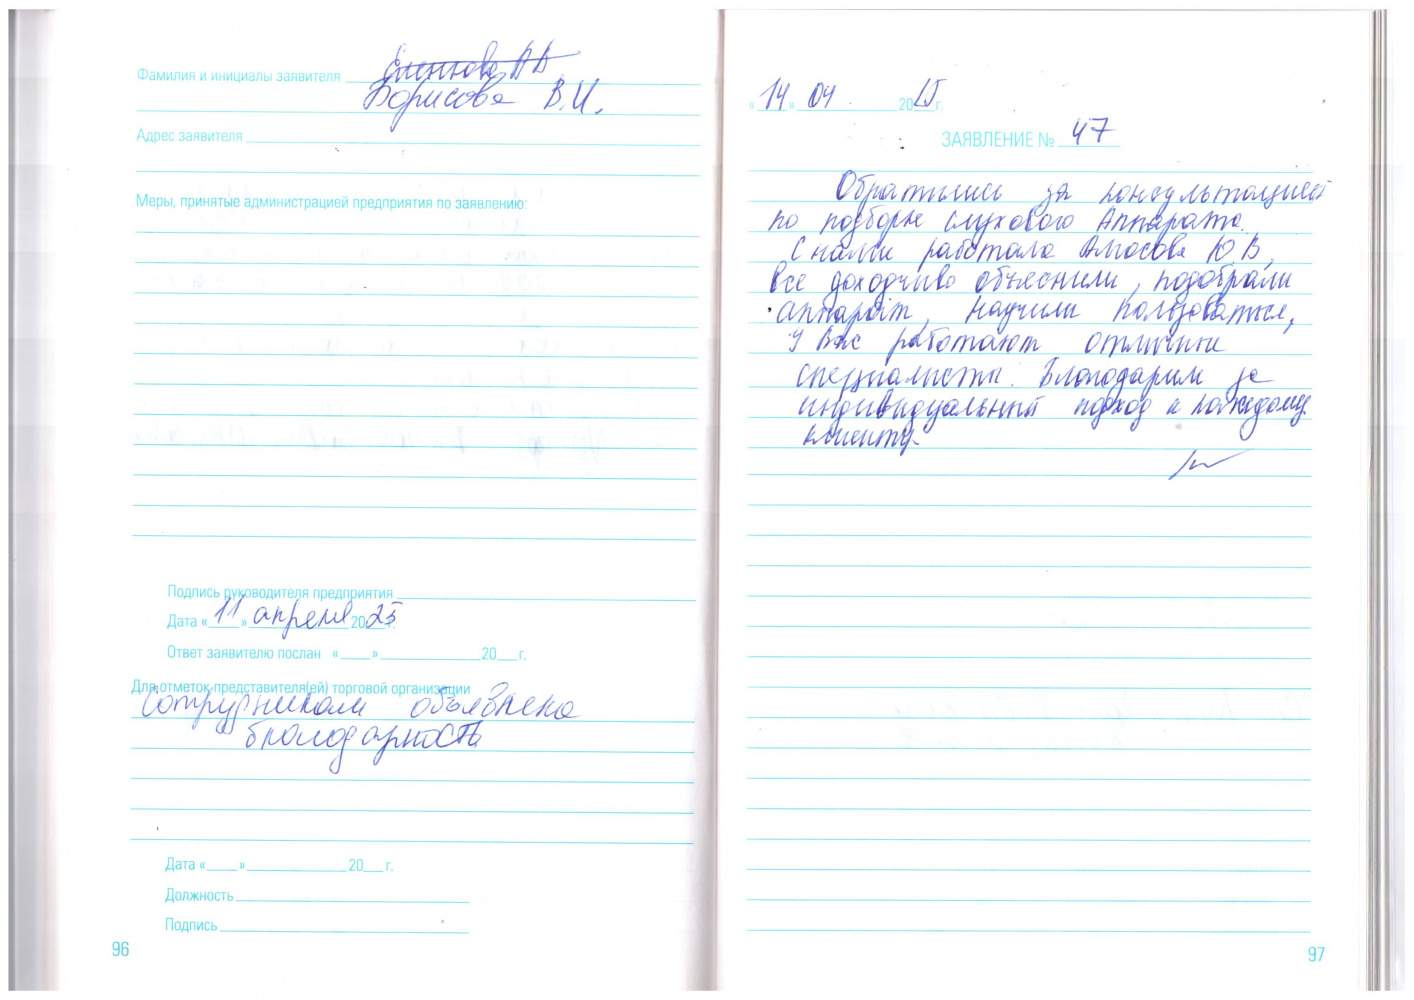 Фамилия и инициалы заявителя
Борисова В.И.
Адрес заявителя
Меры, принятые администрацией предприятия по заявлению:
Подпись руководителя предприятия
Дата «11» апреля 2025 г.
Ответ заявителю послан «___» ___ 20__ г.
Для отметок представителя(ей) торговой организации
Сотрудникам объявлена
благодарность
Дата «___» ___ 20__ г.
Должность
Подпись
96
«14» 04 20 г.
ЗАЯВЛЕНИЕ № 47
Обратились за консультацией
по подборке слухового Аппарата.
С нами работала Амосова Ю В,
Все доходчиво объяснили, подобрали
аппарат, научили пользоваться,
У Вас работают отличные
специалисты. Благодарим за
индивидуальный подход к каждому
клиенту.
97